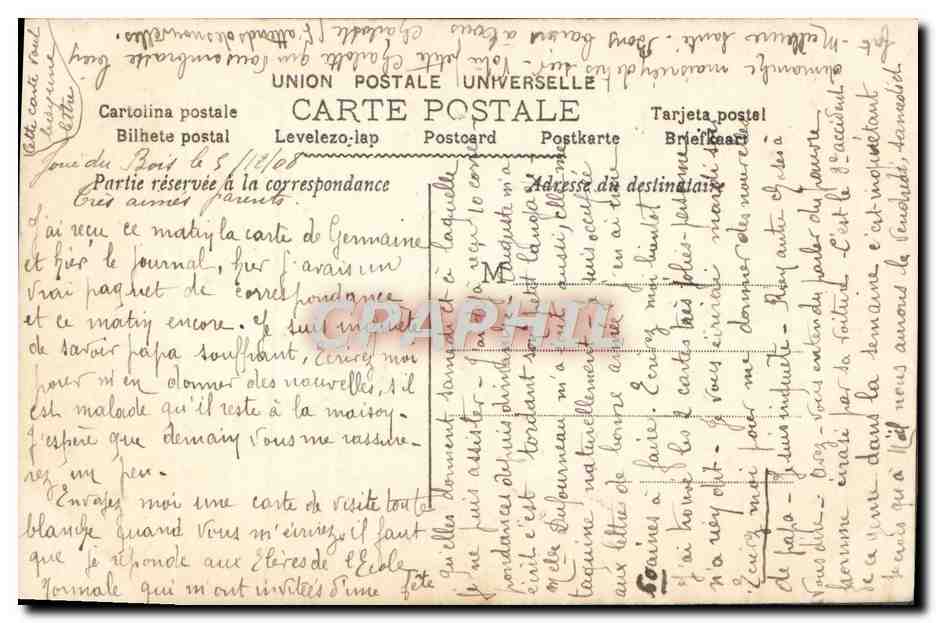 Cette carte vaut
lettre
UNION POSTALE UNIVERSELLE
CARTE POSTALE
Cartolina postale Tarjeta postel
Bilhete postal Levelezo-lap Postcard Postkarte Briefkaart
Partie réservée à la correspondance Adresse du destinataire
M
CPARAMA
Bois le 5/12/08
très aimés parents
J'ai reçu ce matin la carte de Germaine
et hier le journal, hier j'avais un
vrai paquet de correspondance
et ce matin encore. Je suis inquiète
de savoir papa souffrant, Ecrivez moi
pour m'en donner des nouvelles, s'il
est malade qu'il reste à la maison.
J'espère que demain vous me rassure-
rez un peu.
Envoyez moi une carte de visite toute
blanche quand vous m'écrivez, il faut
que je réponde aux Elèves de l'Ecole
Normale qui m'ont invitées d'une fête
qu'elles donnent samedi et à laquelle
je ne puis assister. J'ai reçu 10 corres
pondances depuis dimanche, Auguste m'a
écrit c'est tordant
Melle Dufourneau m'a écrit aussi, elle me
taquine naturellement. Je suis occupée
aux lettres de bonne année j'en ai une
60aines à faire. Ecrivez moi bientôt
J'ai trouvé les 2 cartes très jolies, personne
n'a rien dit. Je vous écrirai mardi si
Ecrivez moi pour me donner des nouvelles
de papa. Je suis inquiète. Rien autre chose à
vous dire. Avez-vous entendu parler du pauvre
homme écrasé par sa voiture. C'est le 3e accident
de ce genre dans la semaine c'est inquiétant
Je crois qu'à Noël nous aurons le vendredi, samedi et
dimanche mais rien de très sûr. Votre petite Charlotte qui vous embrasse bien
fort. Meilleure santé. Bons baisers à tous Charlotte J'attends des nouvelles.